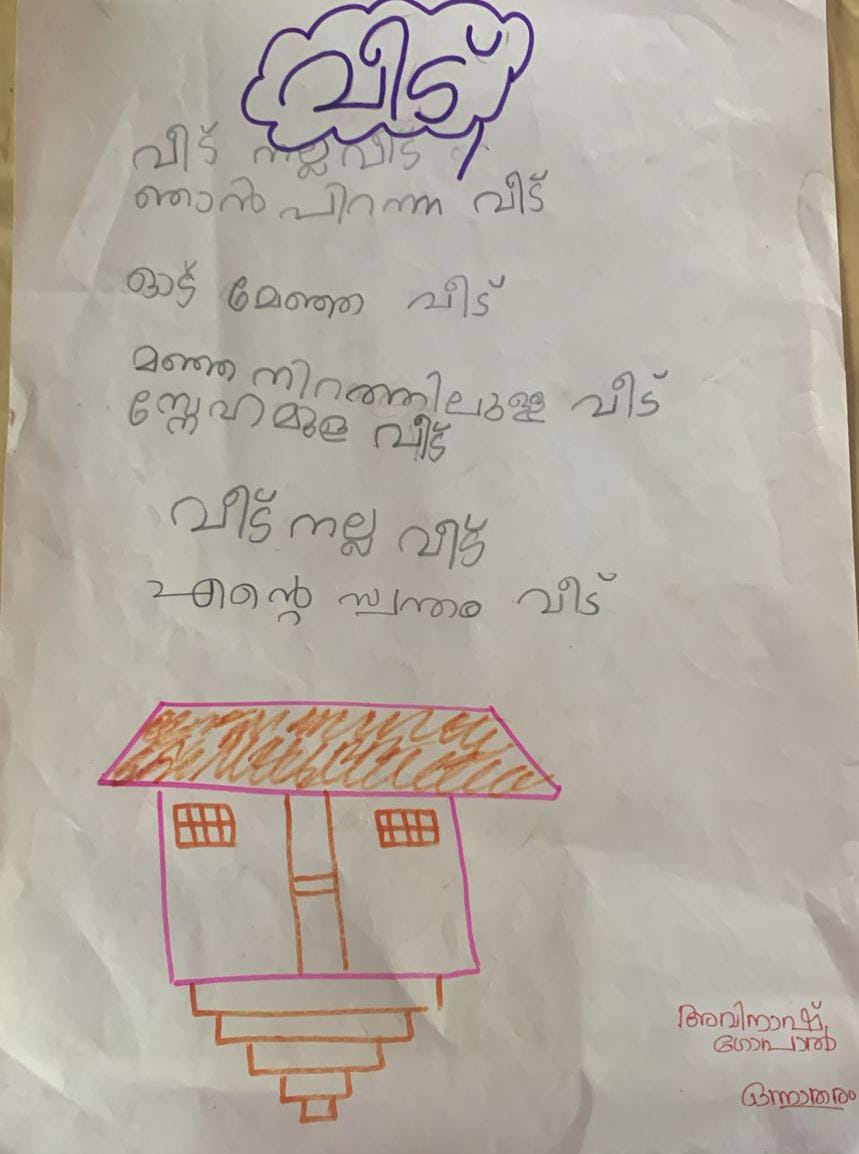 വീട്
വീട് നല്ല വീട്
ഞാൻ പിറന്ന വീട്
ഓട് മേഞ്ഞ വീട്
മഞ്ഞ നിറത്തിലുള്ള വീട്
സ്നേഹമുള വീട്
വീട് നല്ല വീട്
എൻ്റെ സ്വന്തം വീട്
അവിനാഷ്,
ഗോപാൽ
ഒന്നാതരം